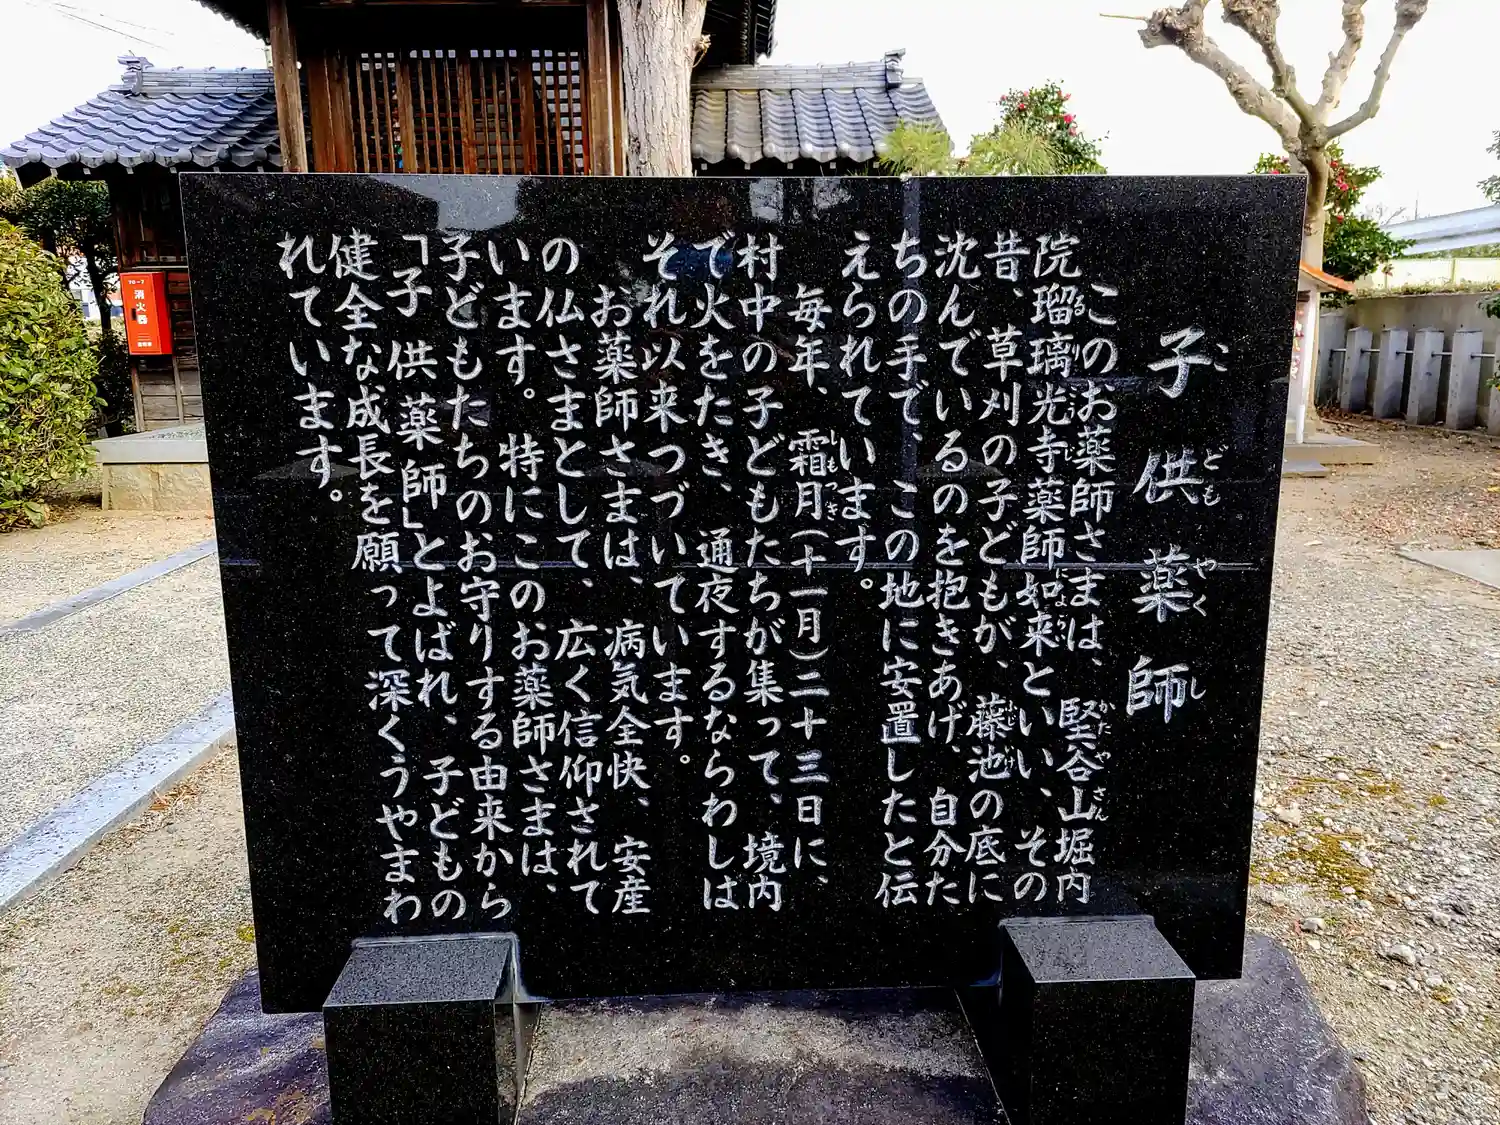 子供薬師
こどもやくし
このお薬師さまは、堅谷山堀内
かたやさん
院瑠璃光寺薬師如来といい、その
るりこうじ
によらい
昔、草刈の子どもが、藤池の底に
ふじいけ
沈んでいるのを抱きあげ、自分た
ちの手で、この地に安置したと伝
えられています。
毎年、霜月(十一月)二十三日に、
しもつき
村中の子どもたちが集って、境内
で火をたき、通夜するならわしは
それ以来つづいています。
お薬師さまは、病気全快、安産
の仏さまとして、広く信仰されて
います。特にこのお薬師さまは、
子どもたちのお守りする由来から
「子供薬師」とよばれ、子どもの
健全な成長を願って深くうやまわ
れています。
70-7
消火器